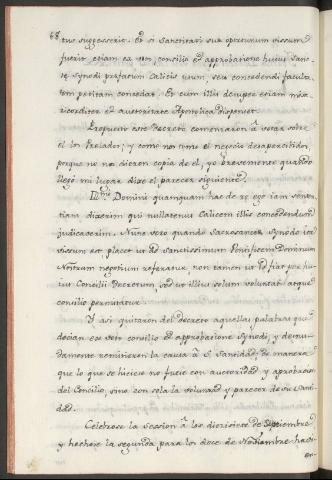 68
tuo suggesserit. Et si Sanctitati suæ optentum vissum
fuerit, etiam ea vero, consilio et approbatione huius Sanc-
tæ Synodi præfatum Calicis usum, seu concedendi faculta-
tem petitam concedat. Et cum illis denuper etiam mise-
ricorditer et autoritate Apostolica dispenset.
Propuesto este Decreto comenzaron à votar sobre
el los Prelados; y como nos tomó el negocio desapercibidos,
porque no nos dieron copia de el, yo brevemente quando
llegó mi lugar dixe el parecer siguiente.
Ill.mi Domini quamquam hac de re ego iam senten-
tiam dixerim qui nullatenus Calicem illis concedendum
judicaverim. Nunc vero quando Sacrosanctæ Synodo ita
vissum est, placet ut ad Sanctissimum Pontificem Dominum
Nostrum negotium referatur, non tamen ut id fiat per hu-
ius Concilii Decretum, sed ut illius solum voluntati atque
consilio permittatur.
Y asi quitaron del decreto aquellas palabras que
decian ea vero consilio et approbatione Synodi, y desnu-
damente remitieron la causa à S. Santidad; de manera
que lo que se hiciese no fuese con auctoridad y aprobacion
del Concilio, sino con sola la voluntad y parecer de su Santi-
dad.
Celebrose la session à los diecisiete de Septiembre
y hechose la segunda para los doce de Noviembre havi-
en-